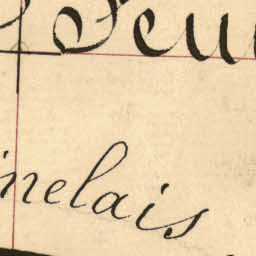 Seu
inelais